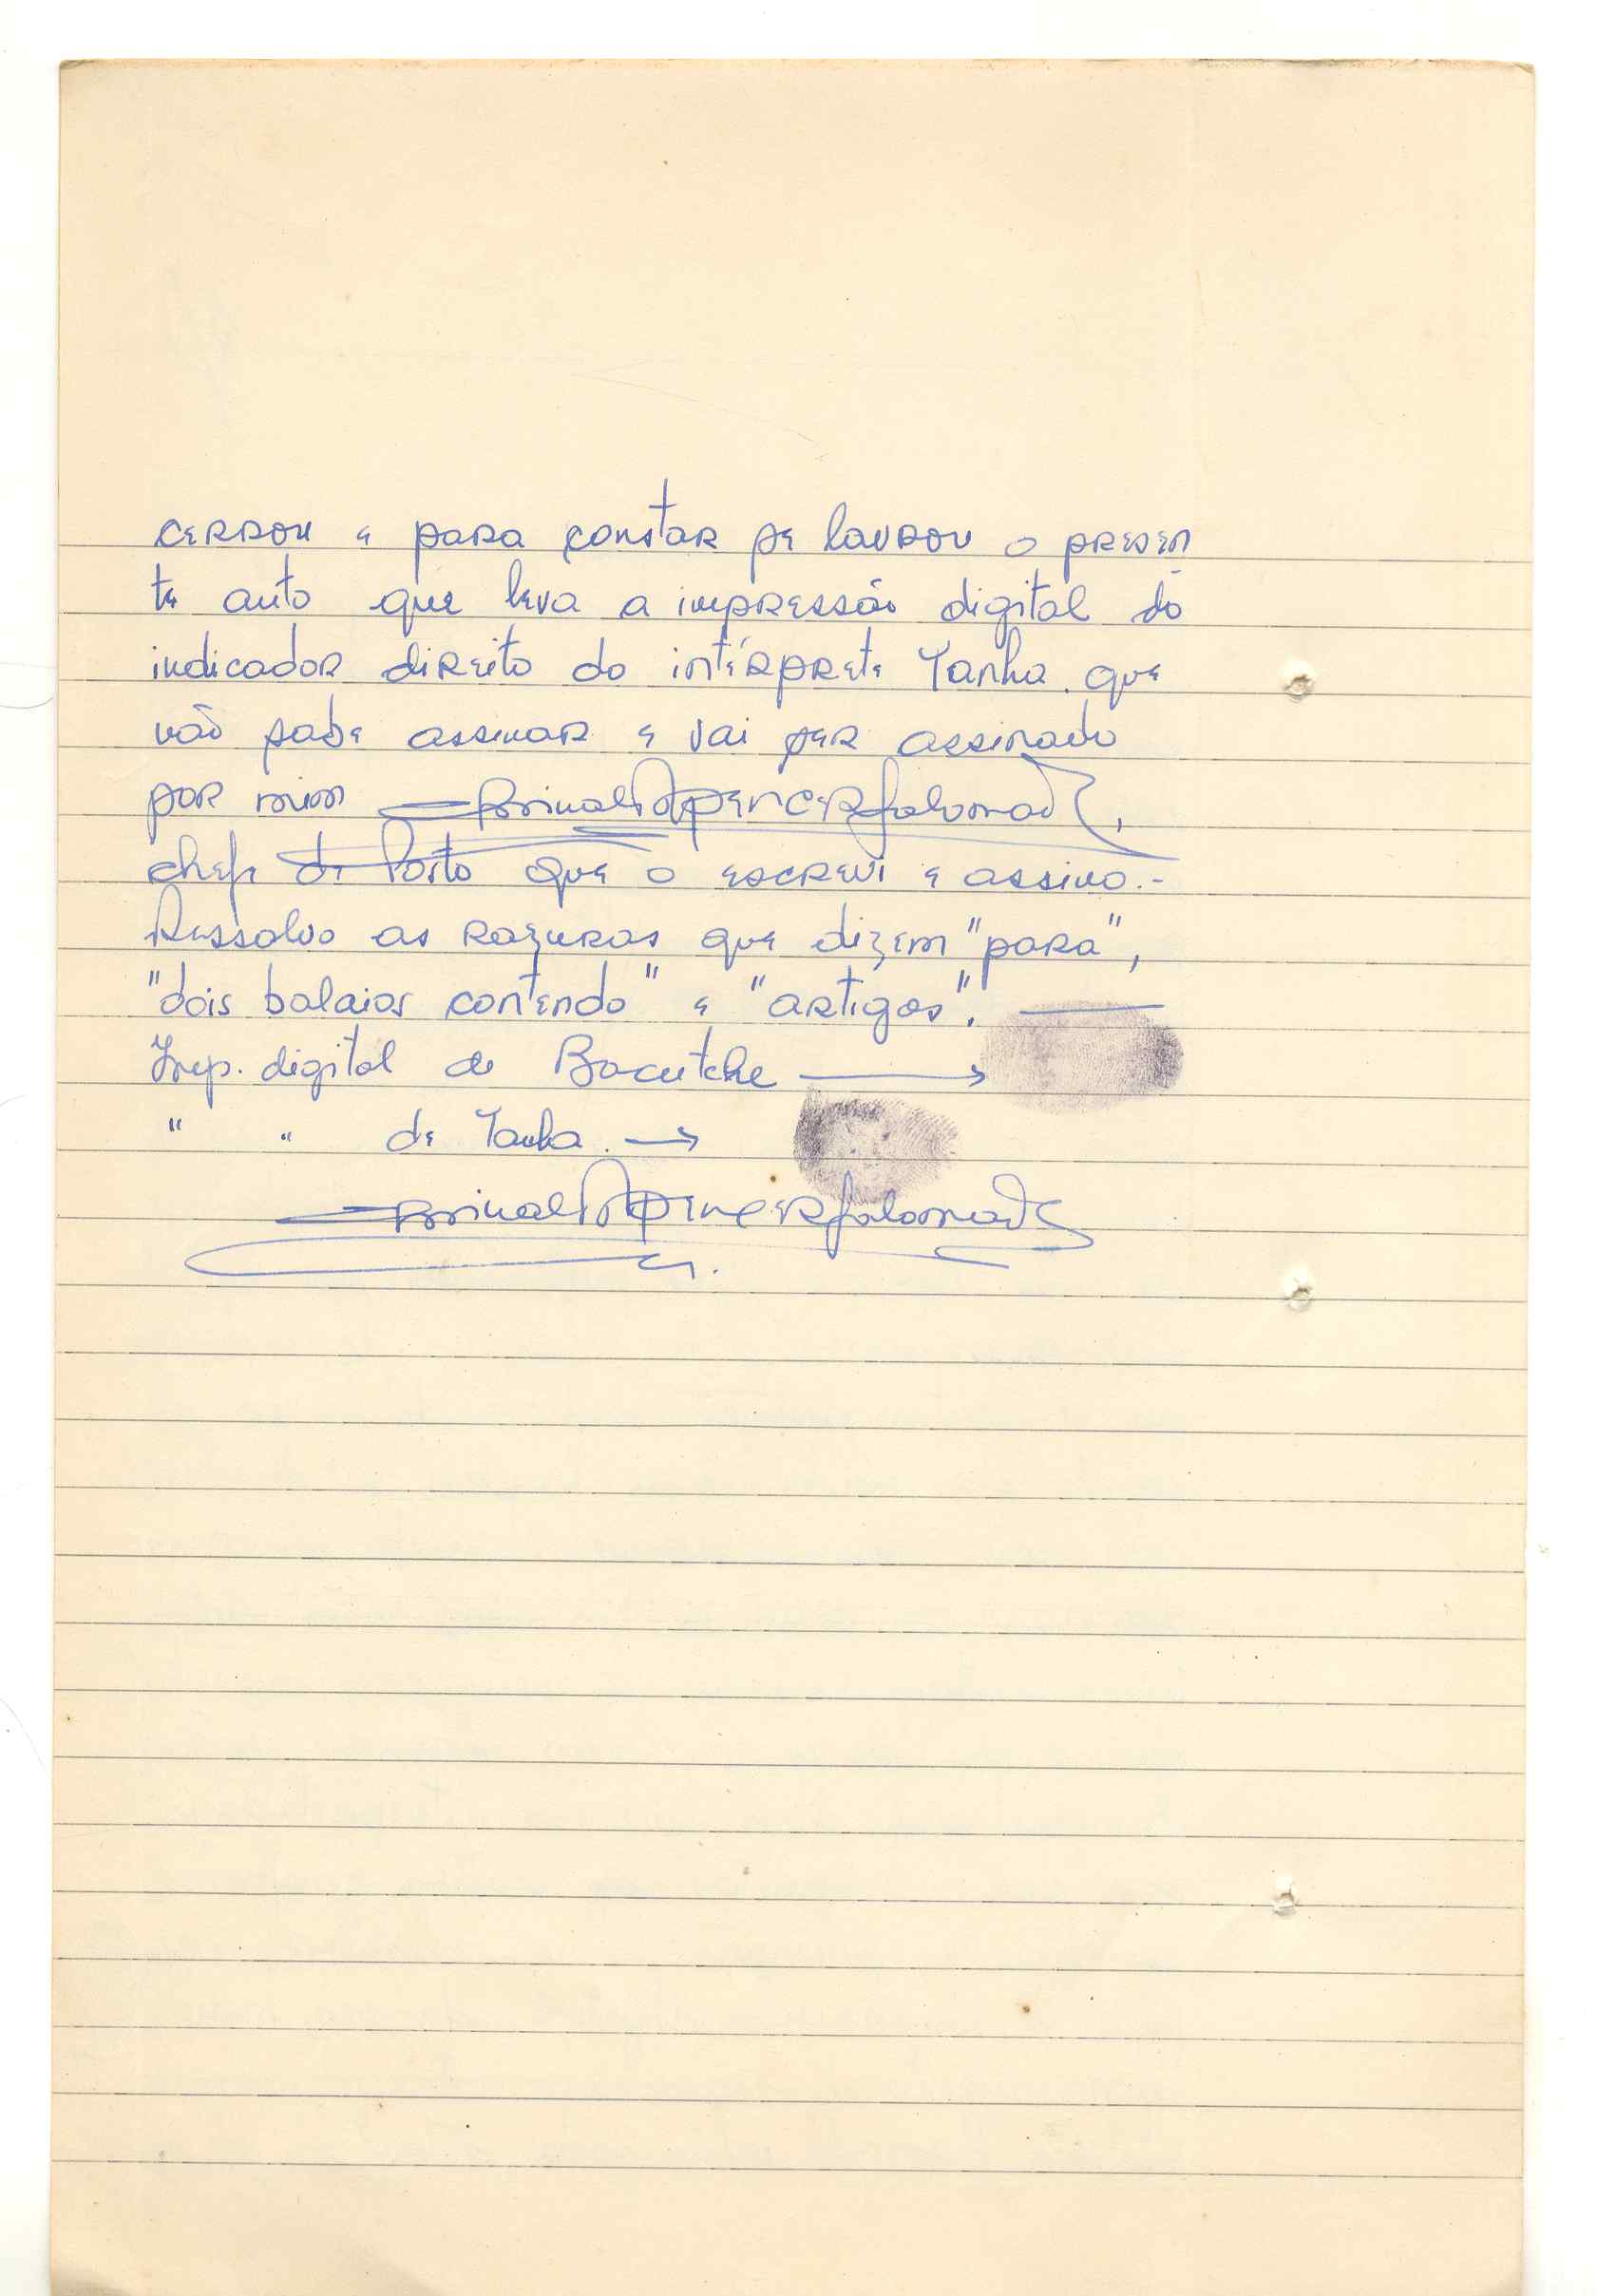 cerrou e para constar se lavrou o presen
te auto que leva a impressão digital do
indicador direito do intérprete Tanha que
não sabe assinar e vai ser assinado
por mim
chefe de Posto que o escrevi e assino.-
Ressalvo as razuras que dizem "para",
"dois balaios contendo" e "artigos".
Imp. digital de Bacutche
" " de Tanha